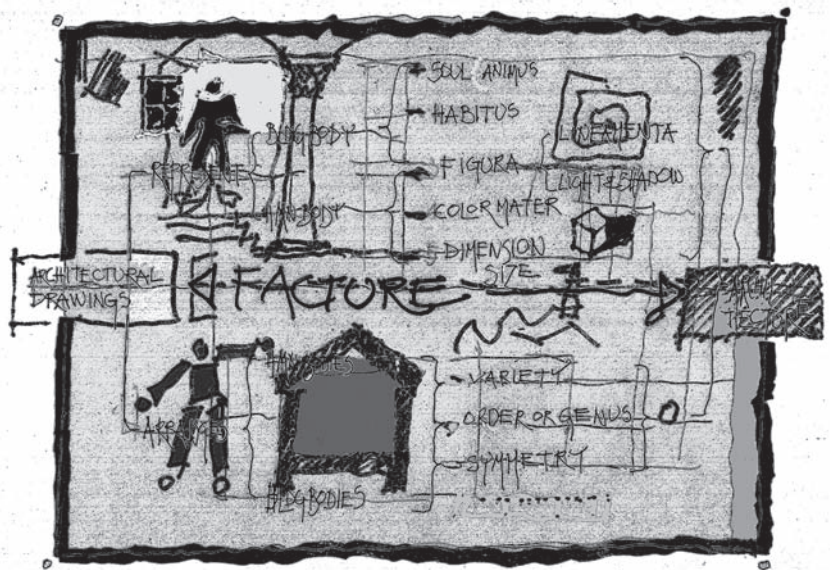 SOUL ANIMUS
HABITUS
BLDG BODY
LINEAMENTA
FIGURA
LIGHT & SHADOW
COLOR MATER
DIMENSION
SIZE
ARCHITECTURAL
DRAWINGS
FACTURE
ARCHI
TECTURE
VARIETY
ORDER OR GENUS
SYMMETRY
BLDG BODIES